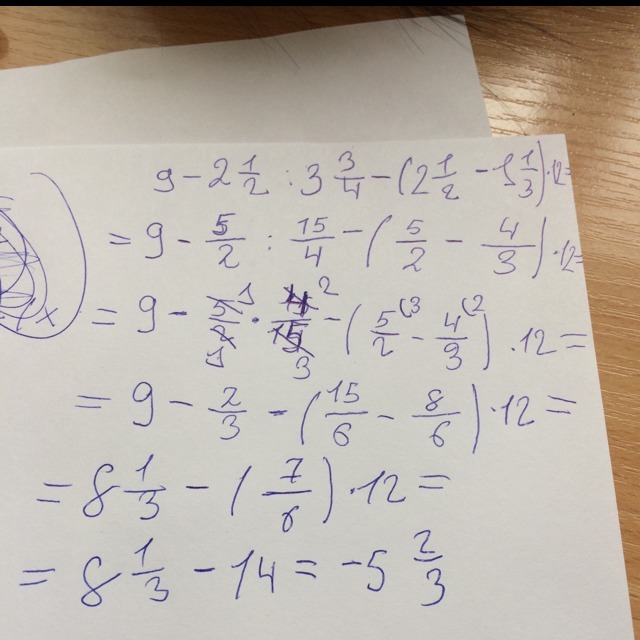 9 - 2 1/2 : 3 3/4 - (2 1/2 - 1 1/3) · 12 =
= 9 - 5/2 : 15/4 - (5/2 - 4/3) · 12 =
= 9 - 5/2 · 4/15 - (5/2 - 4/3) · 12 =
= 9 - 2/3 - (15/6 - 8/6) · 12 =
= 8 1/3 - (7/6) · 12 =
= 8 1/3 - 14 = -5 2/3